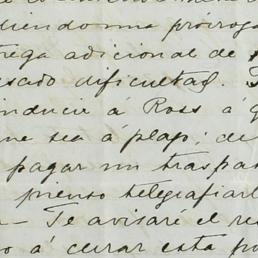 diendo una prorroga
trega adicional de
sado dificultad.
inducir á Ross á q
ne sea á plazo; de
pagar un traspas
pienso telegrafiarl
— Te avisaré el re
o á cerrar esta po